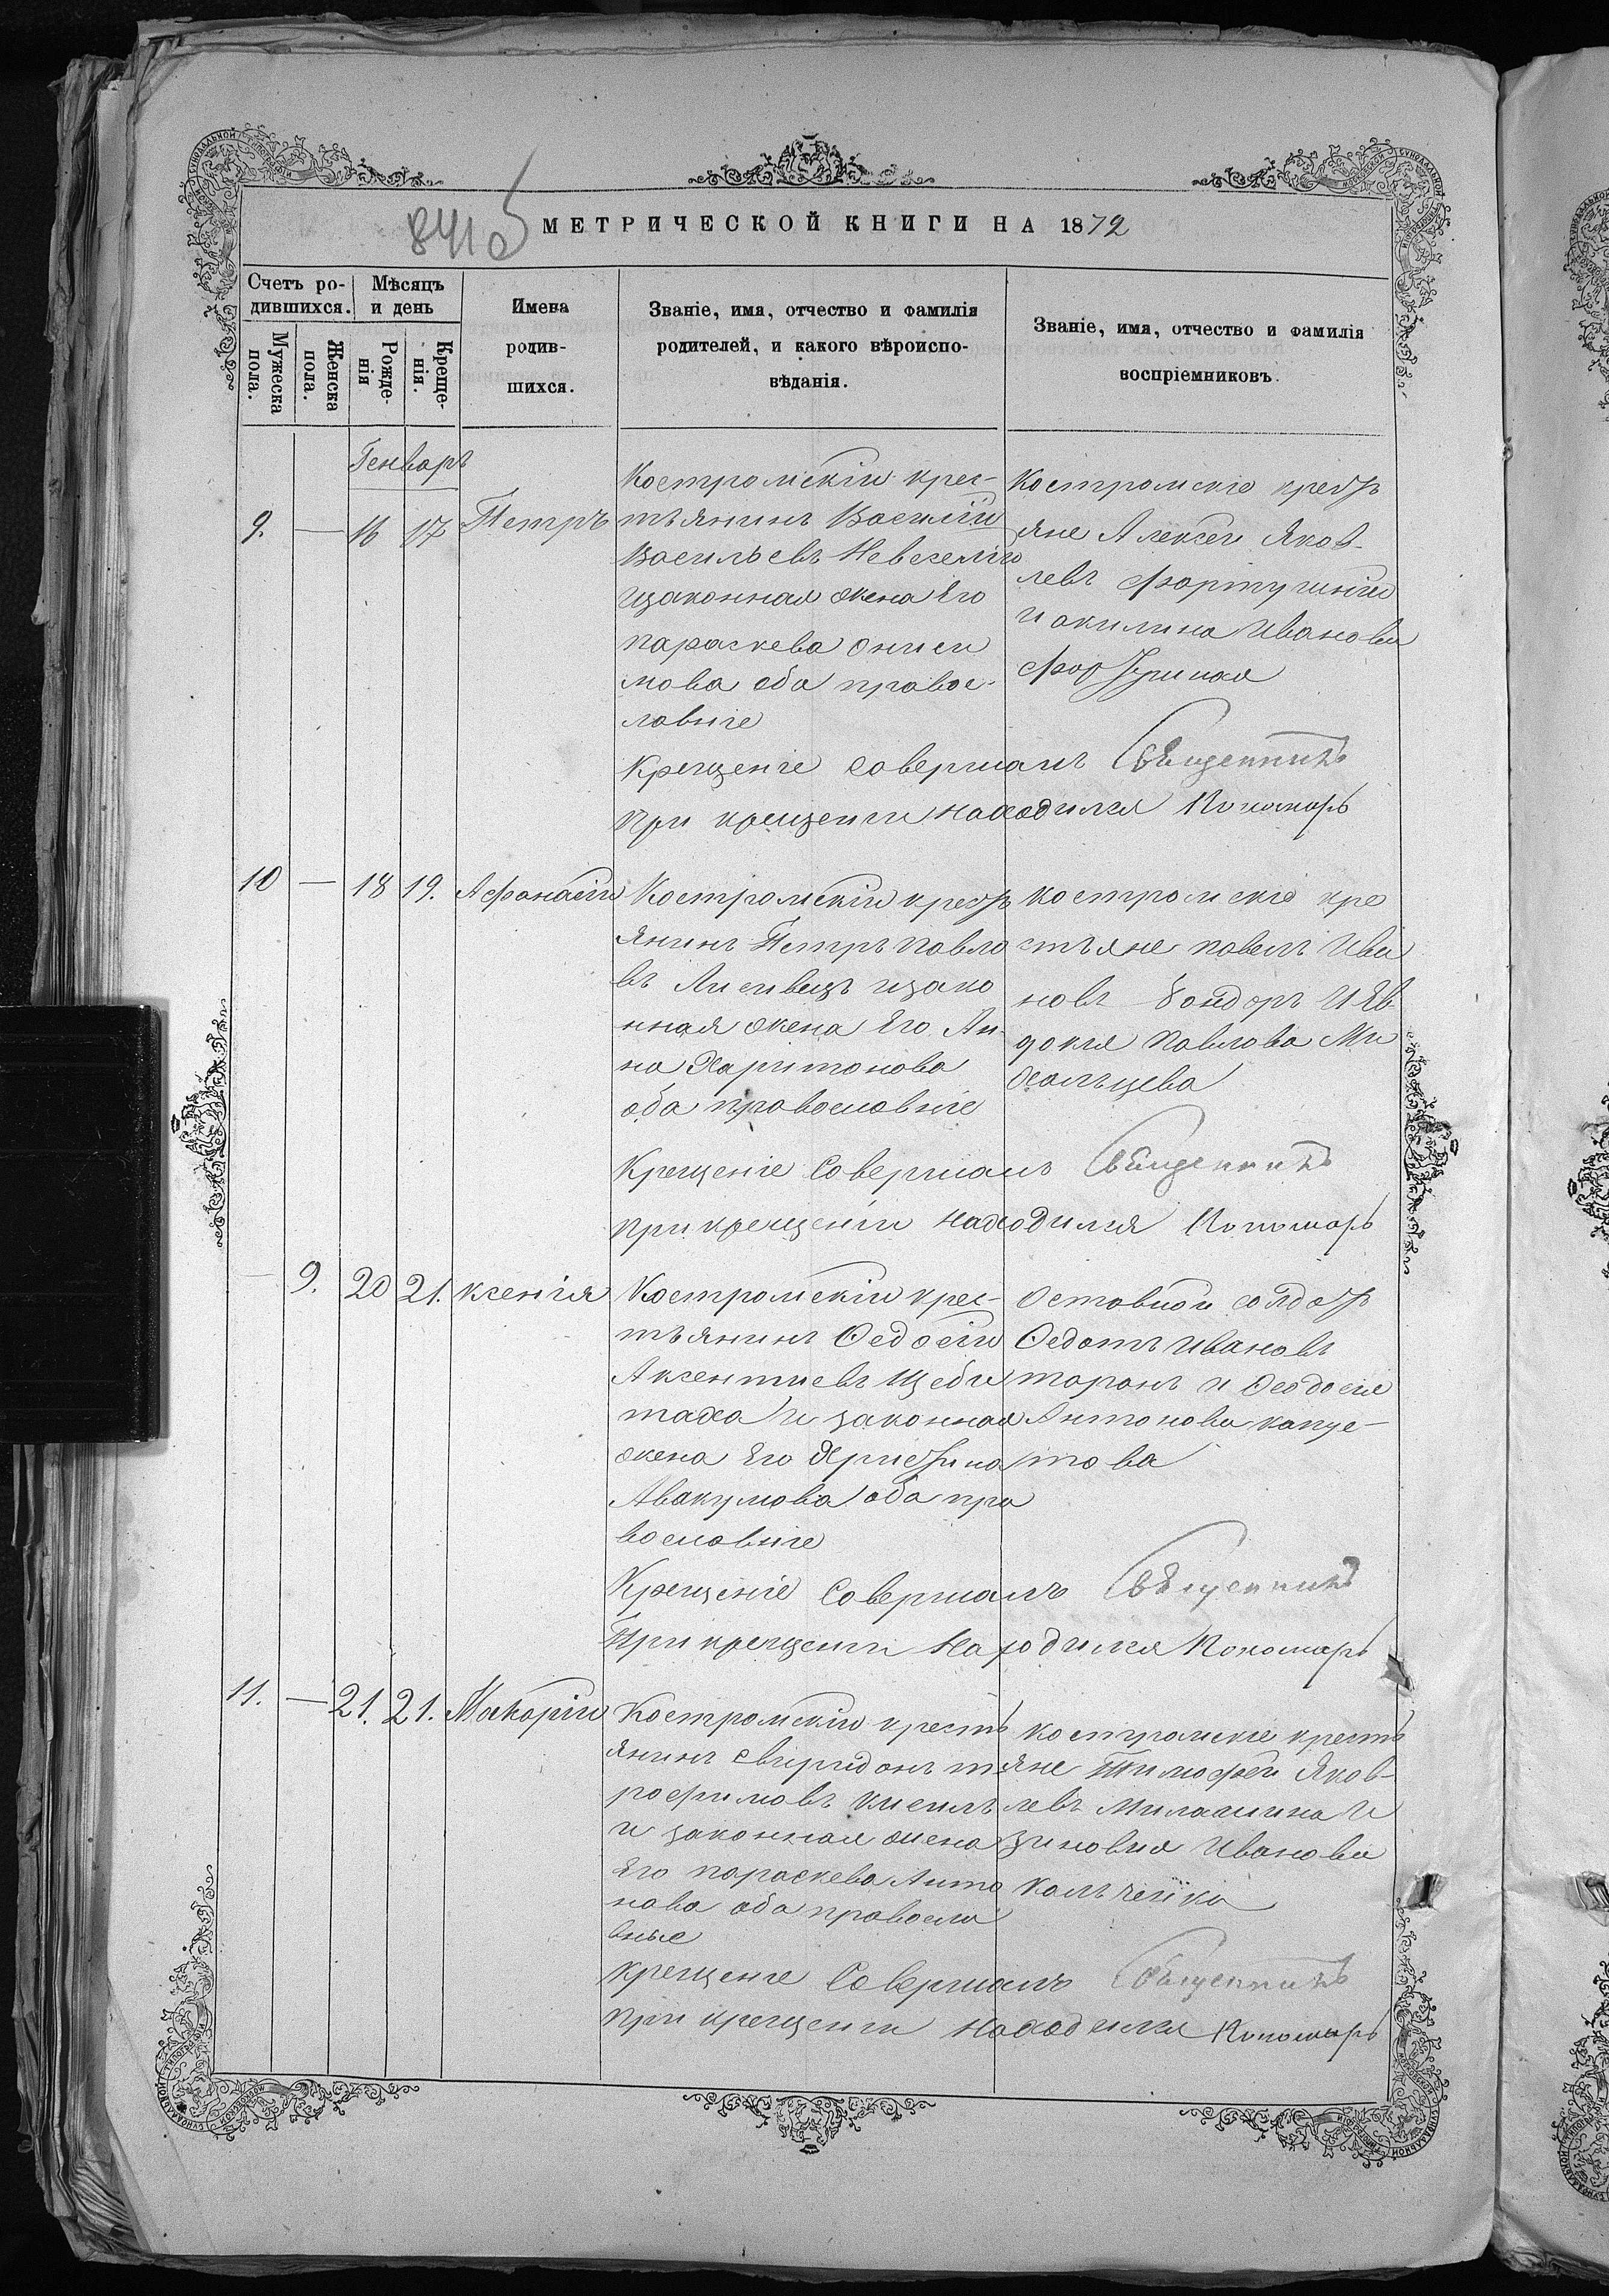 841об
МЕТРИЧЕСКОЙ КНИГИ НА 1872
Счетъ ро-
дившихся.
Мѣсяцъ
и день
Имена
родив-
шихся.
Званіе, имя, отчество и фамилія
родителей, и какого вѣроиспо-
вѣданія.
Званіе, имя, отчество и фамилія
воспріемниковъ.
Мужеска
пола.
Женска
пола.
Рожде-
нія
Креще-
нія.
Генварь
9. — 16 17 Петръ
Костромскій крес-
тьянинъ Василій
Васильевъ Невеселій
изаконная жена Его
параскева ониси
мова оба правос-
лавніе
Костромскіе крестъ
яне Алексей Яков-
левъ
и акилина Иванова
Крещеніе совершалъ Священникъ
При крещеніи находился Пономарь
10 — 18 19. Афанасій
Костромскій крестъ
янинъ Петръ Павло
въ изако
нная жена Его Ан-
на Харитонова
оба православніе
костромскіе кре
стьяне павелъ Ива
новъ бондарь и Ев-
докія Павлова Ми
хальцева
Крещеніе Совершалъ Священникъ
При крещеніи находился Пономарь
— 9. 20 21. ксенія
Костромскій крес-
тьянинъ Федосій
Аксентиевъ Щеби
таха и законная
жена Его Христина
Авакумова оба пра
вославніе
Оставной солдатъ
Федотъ Ивановъ
таранъ и Феодосия
Антонова капус-
това
Крещеніе Совершалъ Священникъ
При крещеніи Находился Пономарь
11. — 21. 21. Макарій
Костромскій кресть
янинъ Свиридонъ т
рофимовъ кисиль
и законная жена
Его параскева Анто
нова оба правосла
вные
костромскіе кресть
яне Тимофей Яков-
левъ Милашина и
Зиновия Иванова
Кальченко
крещеніе Совершалъ Священникъ
При крещеніи находился Пономарь